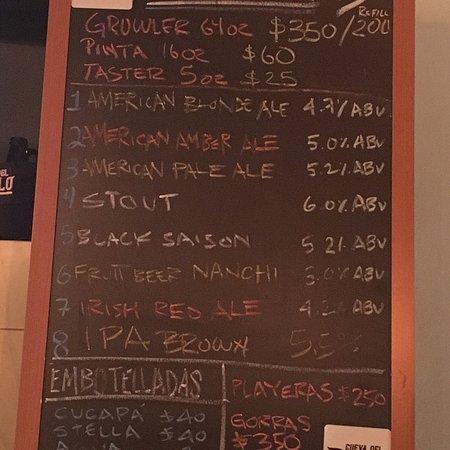 REFILL
GROWLER 64oz $350/200
PINTA 16oz $60
TASTER 5oz $25
1 AMERICAN BLONDE ALE 4.7% ABV
2 AMERICAN AMBER ALE 5.0% ABV
3 AMERICAN PALE ALE 5.2% ABV
4 STOUT 6.0% ABV
5 BLACK SAISON 5.2% ABV
6 FRUIT BEER NANCHI 3.0% ABV
7 IRISH RED ALE ABV
8 IPA BROWN 5.5%
EMBOTELLADAS
CUCAPÁ $40
STELLA $40
PLAYERAS $250
GORRAS
$350
CUEVA DEL